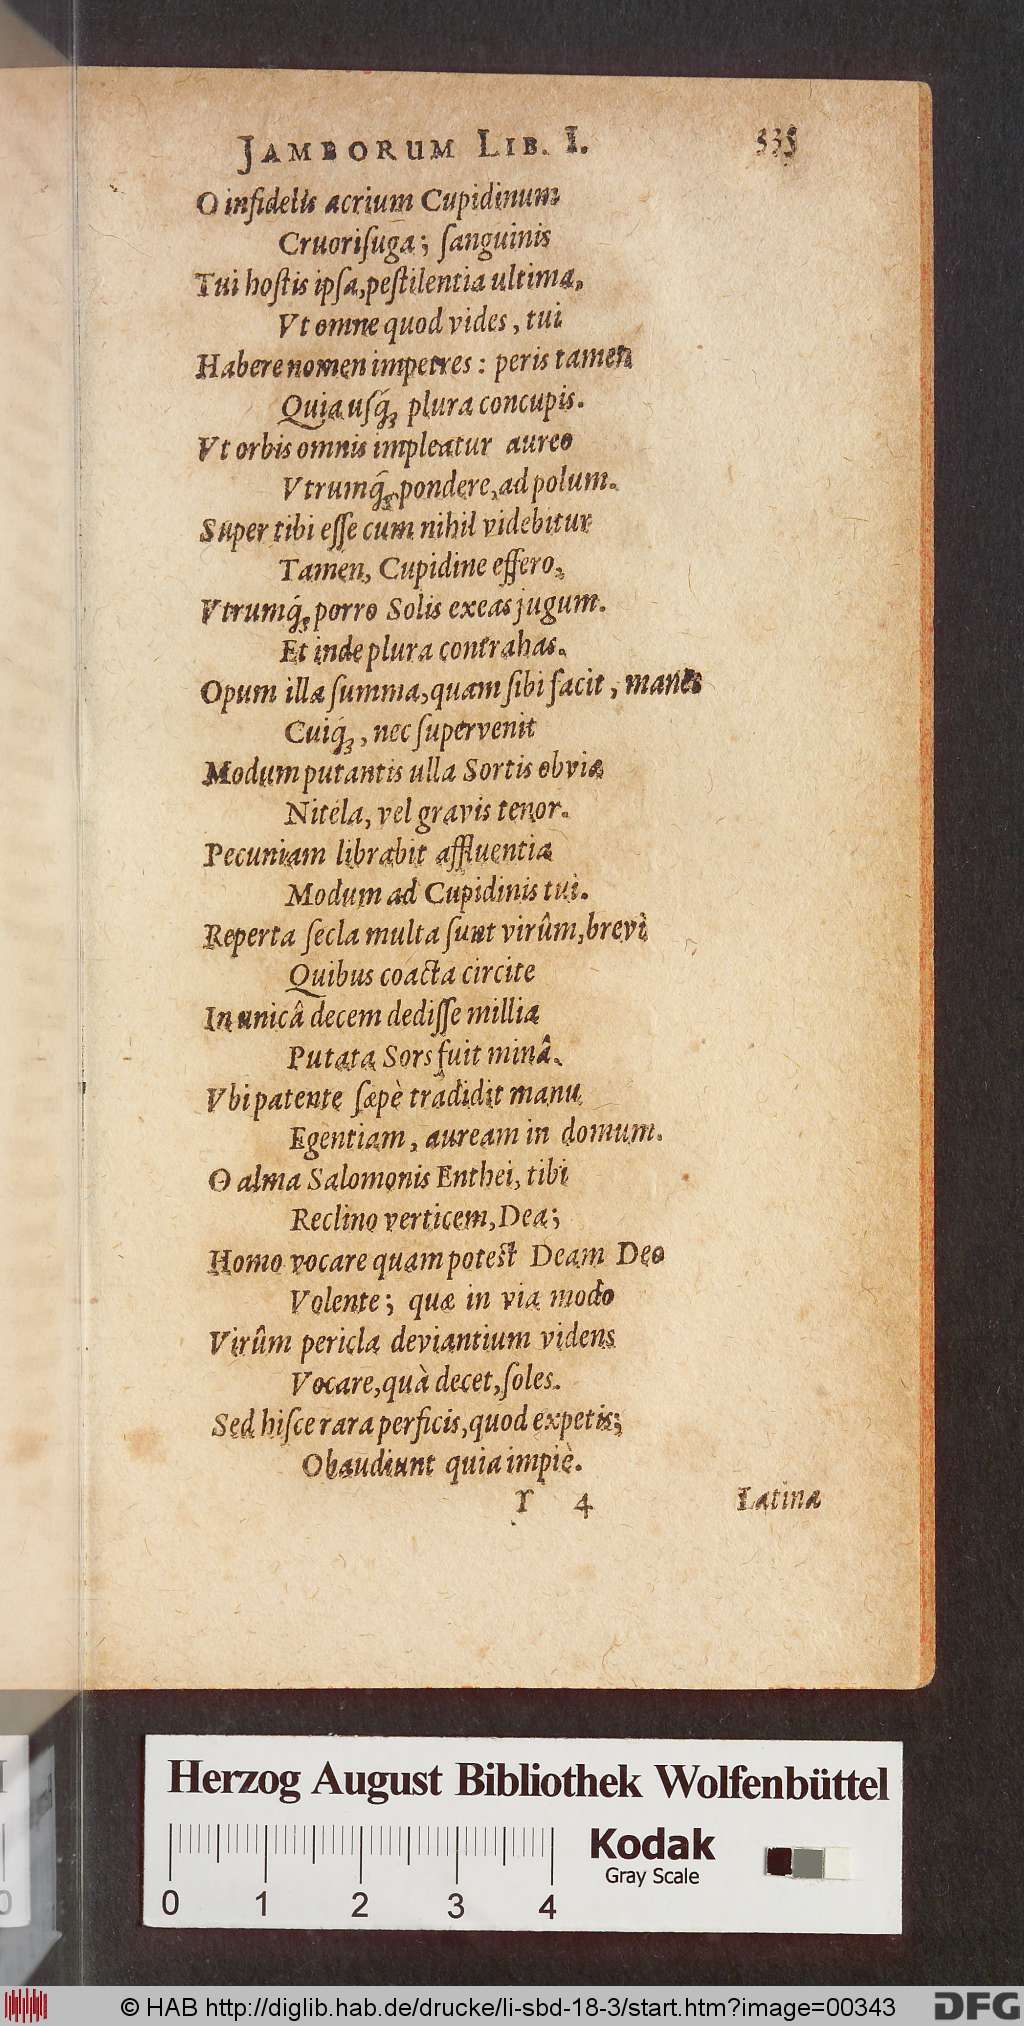 JAMBORUM LIB. I. 335
O infidelis acrium Cupidinum
Cruoriſuga; ſanguinis
Tui hoſtis ipſa, peſtilentia ultima.
Vt omne quod vides, tui
Habere nomen impetres: peris tamen
Quia uſq́ꝫ plura concupis.
Vt orbis omnis impleatur aureo
Vtrumq́ꝫ pondere, ad polum.
Super tibi eſſe cum nihil videbitur
Tamen, Cupidine effero,
Vtrumq́ꝫ porro Solis exeas jugum.
Et inde plura contrahas.
Opum illa ſumma, quam ſibi facit, manet
Cuiq́ꝫ, nec ſupervenit
Modum putantis ulla Sortis obvia
Nitela, vel gravis tenor.
Pecuniam librabit affluentia
Modum ad Cupidinis tui.
Reperta ſecla multa ſunt virûm, brevi
Quibus coacta circite
In unicâ decem dediſſe millia
Putata Sors fuit minâ.
Vbi patente ſæpè tradidit manu
Egentiam, auream in domum.
O alma Salomonis Enthei, tibi
Reclino verticem, Dea;
Homo vocare quam poteſt Deam Deo
Volente; quæ in via modo
Virûm pericla deviantium videns
Vocare, quà decet, ſoles.
Sed hiſce rara perficis, quod expetis;
Obaudiunt quia impiè.
Y 4 Latina
Herzog August Bibliothek Wolfenbüttel
Kodak
Gray Scale
0 1 2 3 4
© HAB http://diglib.hab.de/drucke/li-sbd-18-3/start.htm?image=00343 DFG